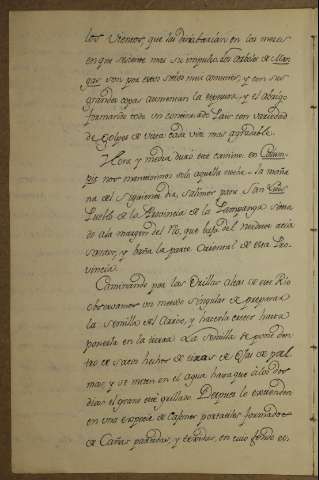 los vientos, que las derribarian en los meses
en que reciente mas su impulso. Los arboles de Man-
gas son por estos sitios mui comunes, y con sus
grandes copas aumentan la espesura y el abrigo
formando todo un continuado Pais con variedad
de Golpes de vista cada vez mas agradable.
Hora y media duró este camino: en Calum-
pit nos mantuvimos solo aquella noche: la maña-
na del siguiente dia salimos para San Luis
Pueblo de la Provincia de la Pampanga situa-
do ala margen del Rio, que baja del Nordeste acia
y baña la parte Oriental de esta Pro-
vincia.
Caminando por las Orillas altas de este Rio
observamos un metodo singular de preparar
la semilla del Arroz, y hacerla crecer hasta
ponerla en la tierra. La semilla se pone den-
tro de sacos hechos de tiras de Ojas de pal-
mas, y se meten en el agua hasta que álos dos
dias el grano esté grillado. Despues lo extienden
en una especie de Cajones portatiles formados
de Cañas partidas, y texidas, en cuio fondo es-